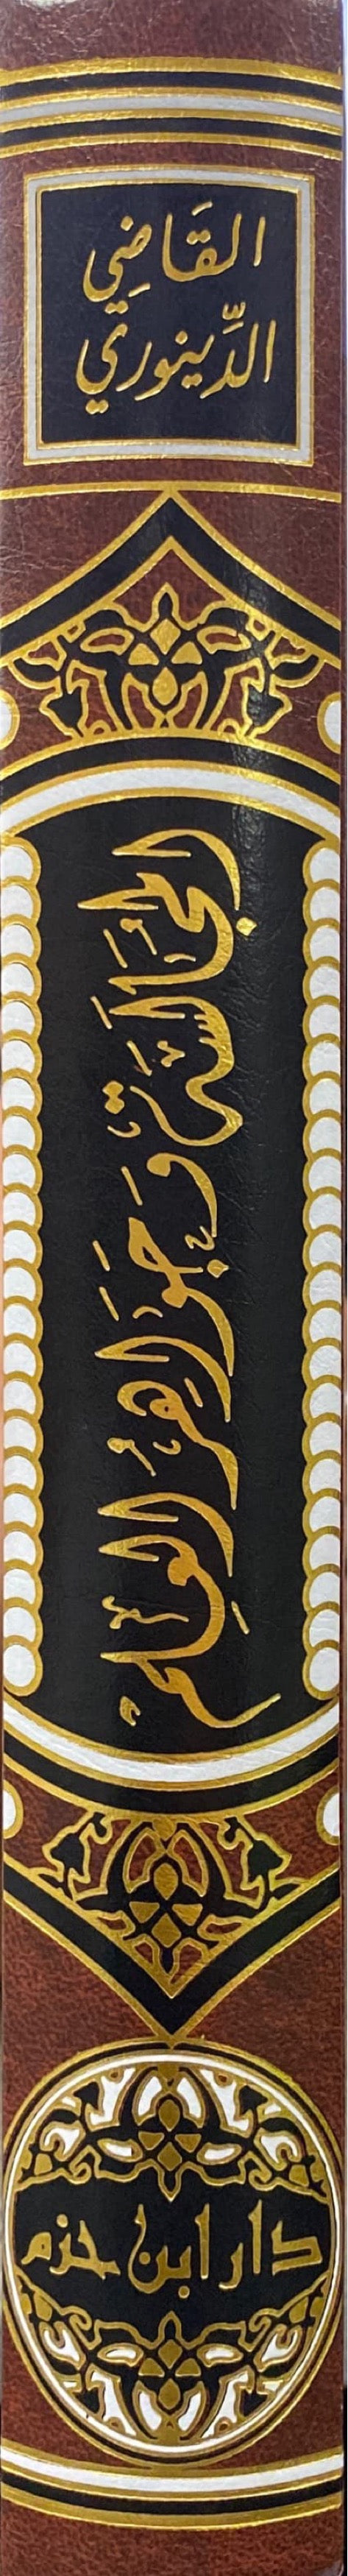 القَاضِي
الدِّينوري
المجَالسَة وَجَواهِرُ العِلم
دار ابن حزم